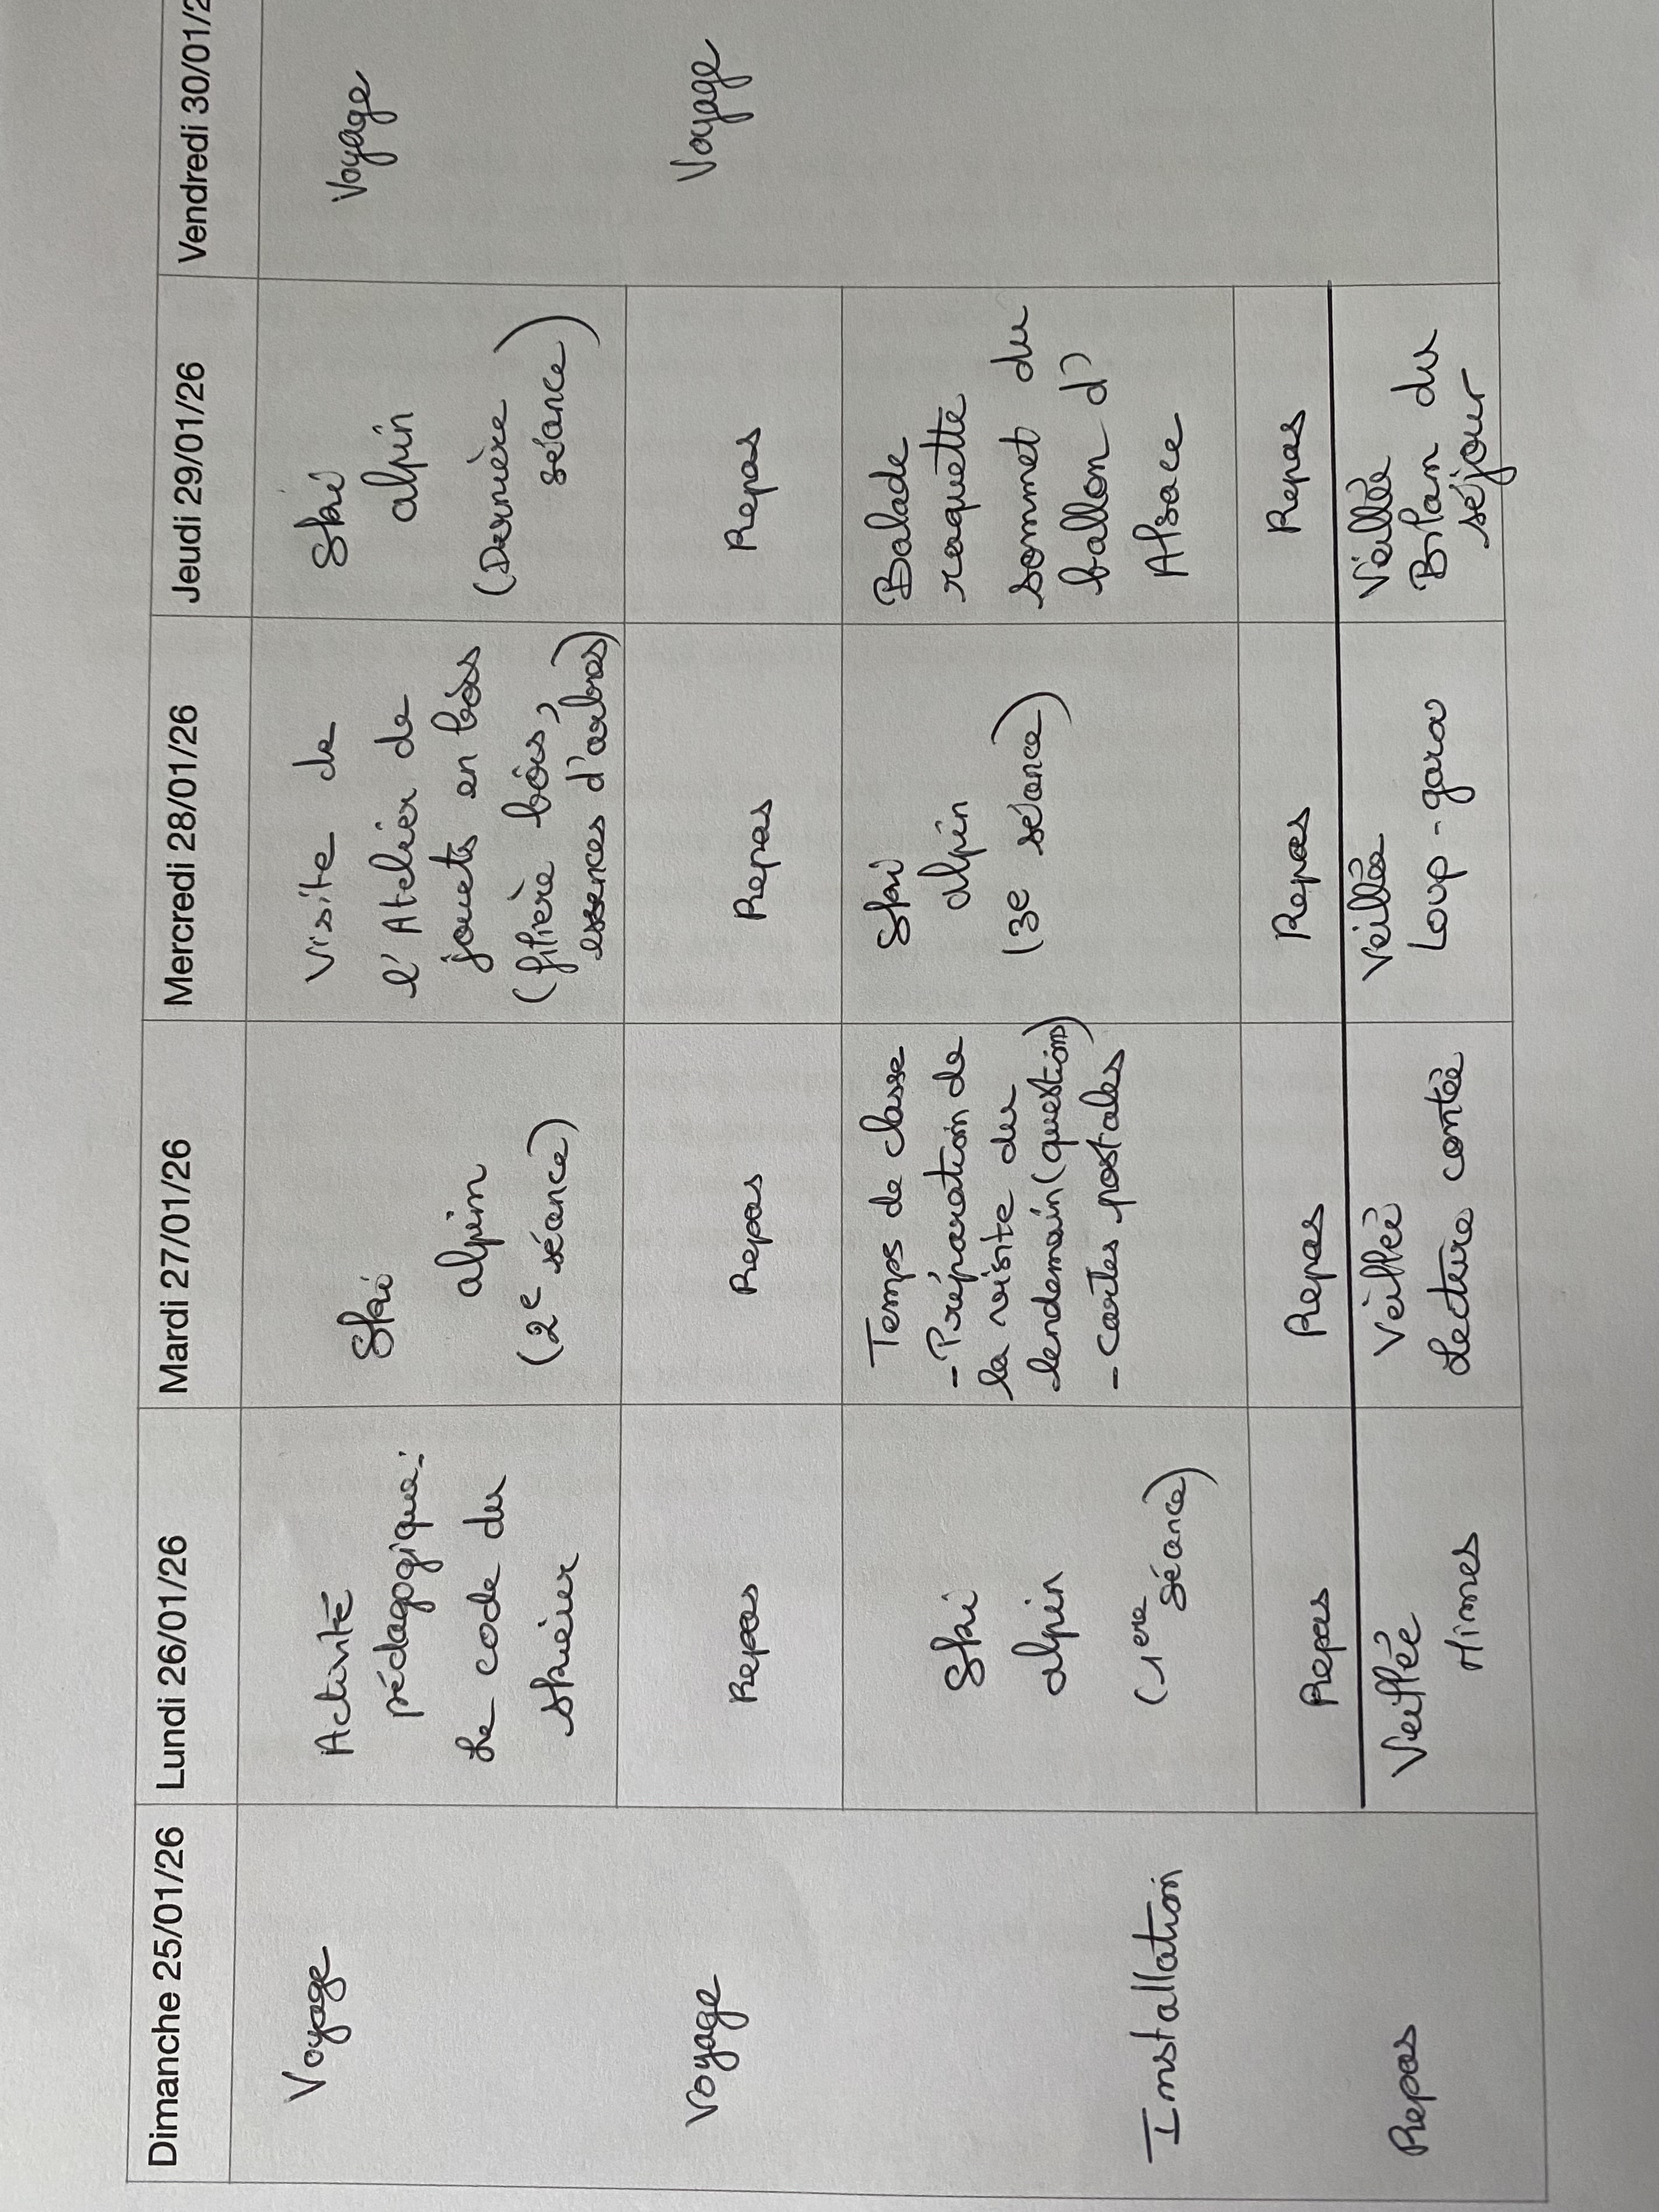 Dimanche 25/01/26
Lundi 26/01/26
Mardi 27/01/26
Mercredi 28/01/26
Jeudi 29/01/26
Vendredi 30/01/2
Voyage
Voyage
Installation
Repas
Activité
pédagogique:
Le code du
skieur
Repas
Ski
alpin
(1ere
séance)
Repas
Veillée
Mimes
Ski
alpin
(2e séance)
Repas
Temps de classe
- Préparation de
la visite du
lendemain (questions)
- Cartes postales
Repas
Veillée
Lecture contée
Visite de
l'Atelier de
jouets en bois
(filière bois,
essences d'arbres)
Repas
Ski
alpin
(3e séance)
Repas
Veillée
Loup-garou
Ski
alpin
(Dernière
séance)
Repas
Balade
raquette
sommet du
ballon d'
Alsace
Repas
Veillée
Bilan du
séjour
Voyage
Voyage